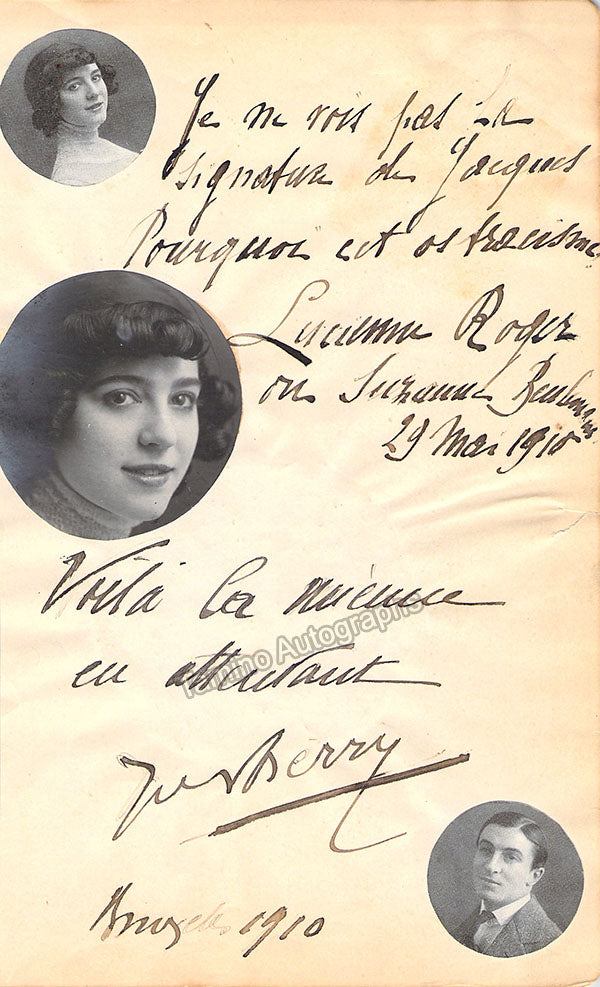 Je ne vois pas la
signature de Jacques
Pourquoi cet ostracisme
Lucienne Roger
ou Suzanne Beulemans
29 Mai 1910
Voilà la mienne
en attendant
Tamino Autographs
Jules Berry
Bruxelles 1910